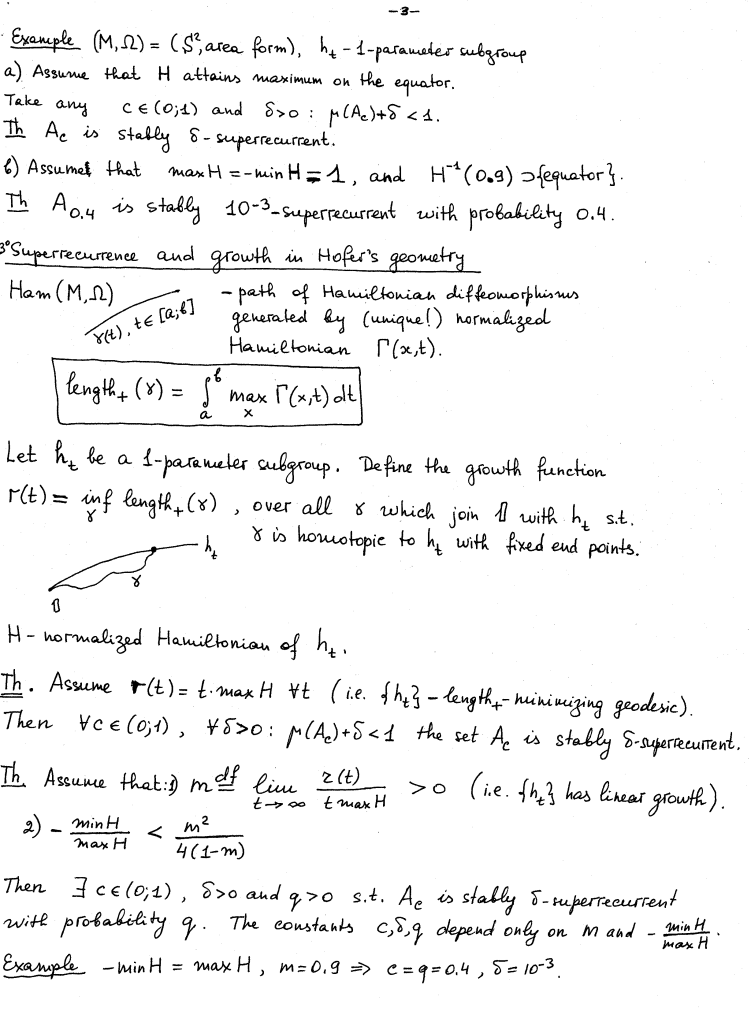 -3-
Example (M,Ω) = (S², area form), h_t - 1-parameter subgroup
a) Assume that H attains maximum on the equator.
Take any c∈(0;1) and δ>0 : μ(A_c)+δ < 1.
Th A_c is stably δ-superrecurrent.
b) Assumet that max H = -min H = 1, and H⁻¹(0.9) ⊃ {equator}.
Th A_0.4 is stably 10⁻³-superrecurrent with probability 0.4.
3° Superrecurrence and growth in Hofer's geometry
Ham (M,Ω) - path of Hamiltonian diffeomorphisms
γ(t), t∈[a;b] generated by (unique!) normalized
Hamiltonian Γ(x,t).
length₊(γ) = ∫_a^b max_x Γ(x,t) dt
Let h_t be a 1-parameter subgroup. Define the growth function
r(t) = inf_γ length₊(γ), over all γ which join 𝟙 with h_t s.t.
γ is homotopic to h_t with fixed end points.
h_t
γ
𝟙
H - normalized Hamiltonian of h_t.
Th. Assume r(t) = t·max H ∀t (i.e. {h_t} - length₊-minimizing geodesic).
Then ∀c∈(0;1), ∀δ>0: μ(A_c)+δ<1 the set A_c is stably δ-superrecurrent.
Th. Assume that: 1) m ≝ lim_{t→∞} r(t)/(t max H) > 0 (i.e. {h_t} has linear growth).
2) - min H/max H < m²/(4(1-m))
Then ∃ c∈(0;1), δ>0 and q>0 s.t. A_c is stably δ-superrecurrent
with probability q. The constants c,δ,q depend only on m and - min H/max H.
Example -min H = max H, m=0.9 ⇒ c=q=0.4, δ=10⁻³.